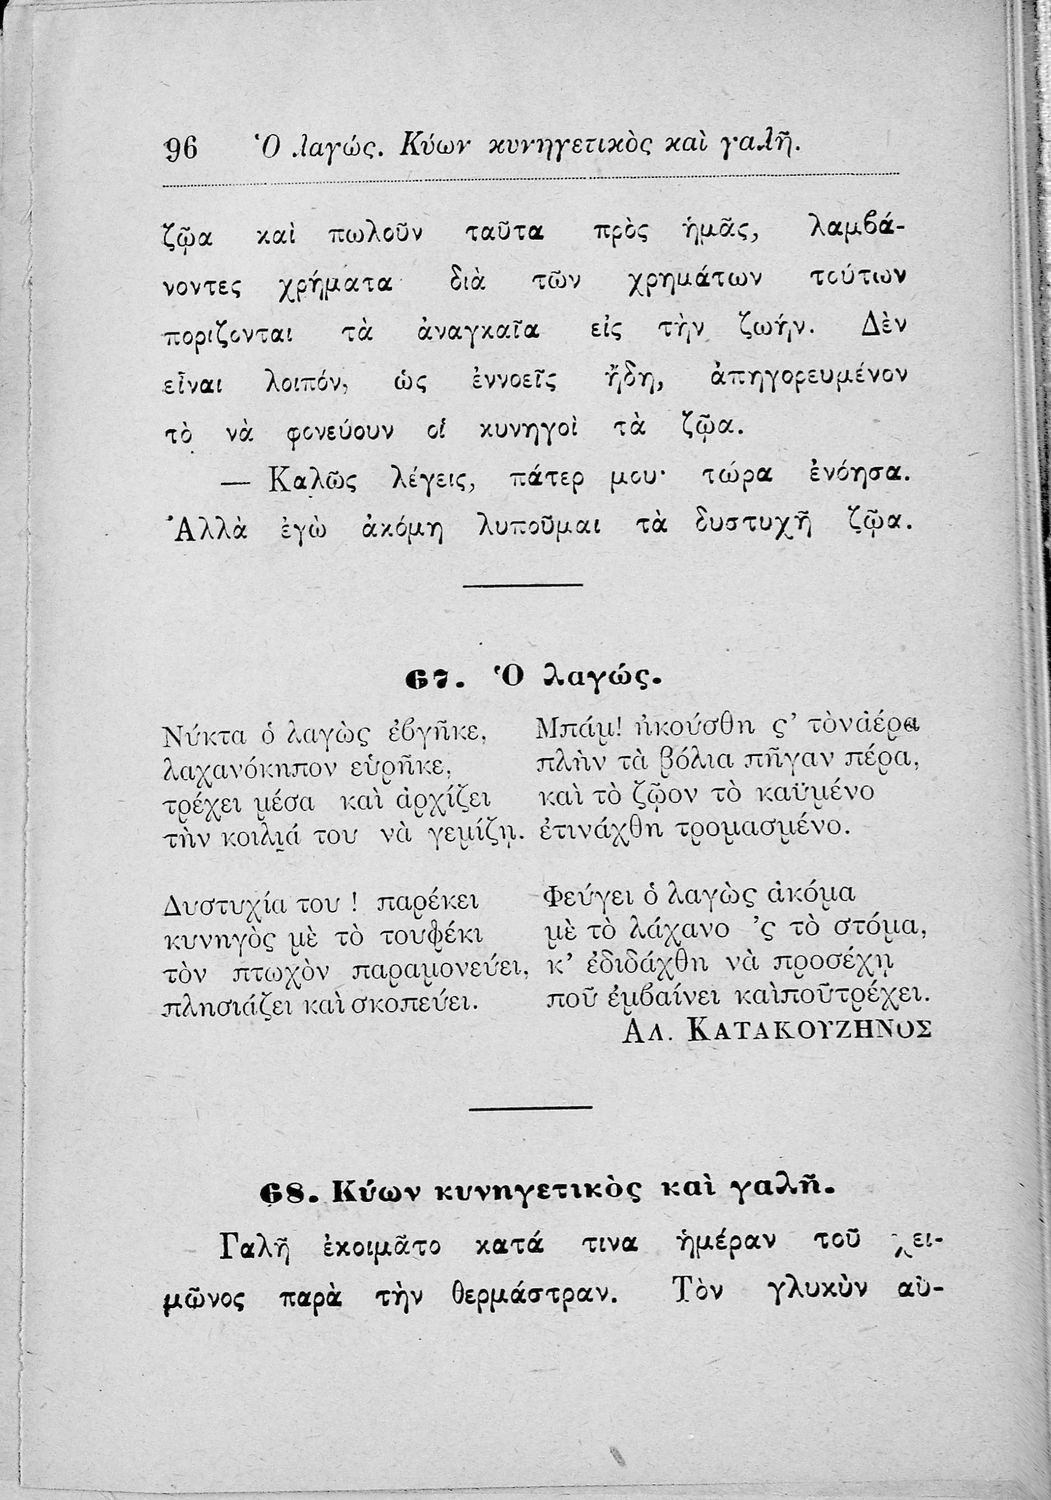 96 Ὁ λαγώς. Κύων κυνηγετικὸς καὶ γαλῆ.
ζῷα καὶ πωλοῦν ταῦτα πρὸς ἡμᾶς, λαμβά-
νοντες χρήματα· διὰ τῶν χρημάτων τούτων
πορίζονται τὰ ἀναγκαῖα εἰς τὴν ζωήν. Δὲν
εἶναι λοιπόν, ὡς ἐννοεῖς ἤδη, ἀπηγορευμένον
τὸ νὰ φονεύουν οἱ κυνηγοὶ τὰ ζῷα.
— Καλῶς λέγεις, πάτερ μου· τώρα ἐνόησα.
Ἀλλὰ ἐγὼ ἀκόμη λυποῦμαι τὰ δυστυχῆ ζῷα.
67. Ὁ λαγώς.
Νύκτα ὁ λαγὼς ἐβγῆκε,
λαχανόκηπον εὑρῆκε,
τρέχει μέσα καὶ ἀρχίζει
τὴν κοιλιά του νὰ γεμίζῃ.
Δυστυχία του ! παρέκει
κυνηγὸς μὲ τὸ τουφέκι
τὸν πτωχὸν παραμονεύει,
πλησιάζει καὶ σκοπεύει.
Μπάμ! ἠκούσθη ς’ τὸν ἀέρα
πλὴν τὰ βόλια πῆγαν πέρα,
καὶ τὸ ζῷον τὸ καϋμένο
ἐτινάχθη τρομασμένο.
Φεύγει ὁ λαγὼς ἀκόμα
μὲ τὸ λάχανο ’ς τὸ στόμα,
κ’ ἐδιδάχθη νὰ προσέχῃ
ποῦ ἐμβαίνει καὶ ποῦ τρέχει.
Αλ. Κατακουζηνος
68. Κύων κυνηγετικὸς καὶ γαλῆ.
Γαλῆ ἐκοιμᾶτο κατά τινα ἡμέραν τοῦ χει-
μῶνος παρὰ τὴν θερμάστραν. Τὸν γλυκὺν αὐ-